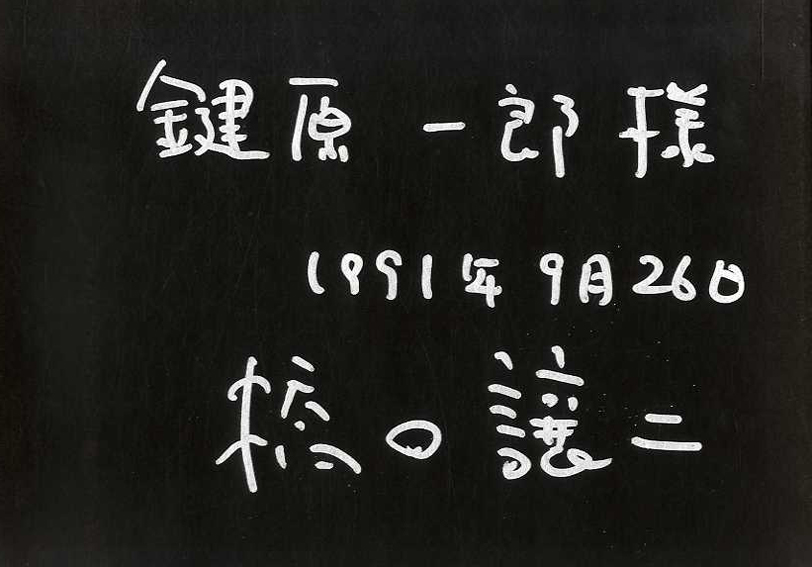 鍵原一郎様
1991年9月26日
橋口譲二